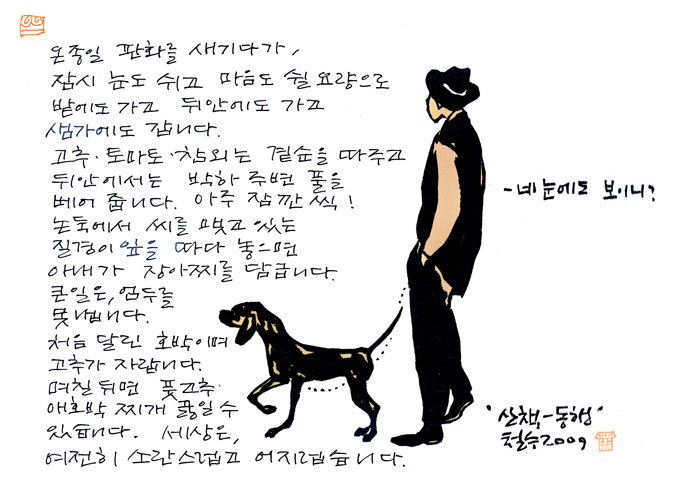 온종일 판화를 새기다가,
잠시 눈도 쉬고 마음도 쉴 요량으로
밭에도 가고 뒤안에도 가고
샘가에도 갑니다.
고추·토마토·참외는 곁순을 따주고
뒤안에서는 박하 주변 풀을
베어 줍니다. 아주 잠깐씩!
논둑에서 씨를 맺고 있는
질경이 잎을 따다 놓으면
아내가 장아찌를 담급니다.
큰일은, 엄두를
못냅니다.
처음 달린 호박이며
고추가 자랍니다.
며칠 뒤면 풋고추·
애호박 찌개 끓일 수
있습니다. 세상은,
여전히 소란스럽고 어지럽습니다.
- 네 눈에도 보이니?
"산책-동행"
철수2009